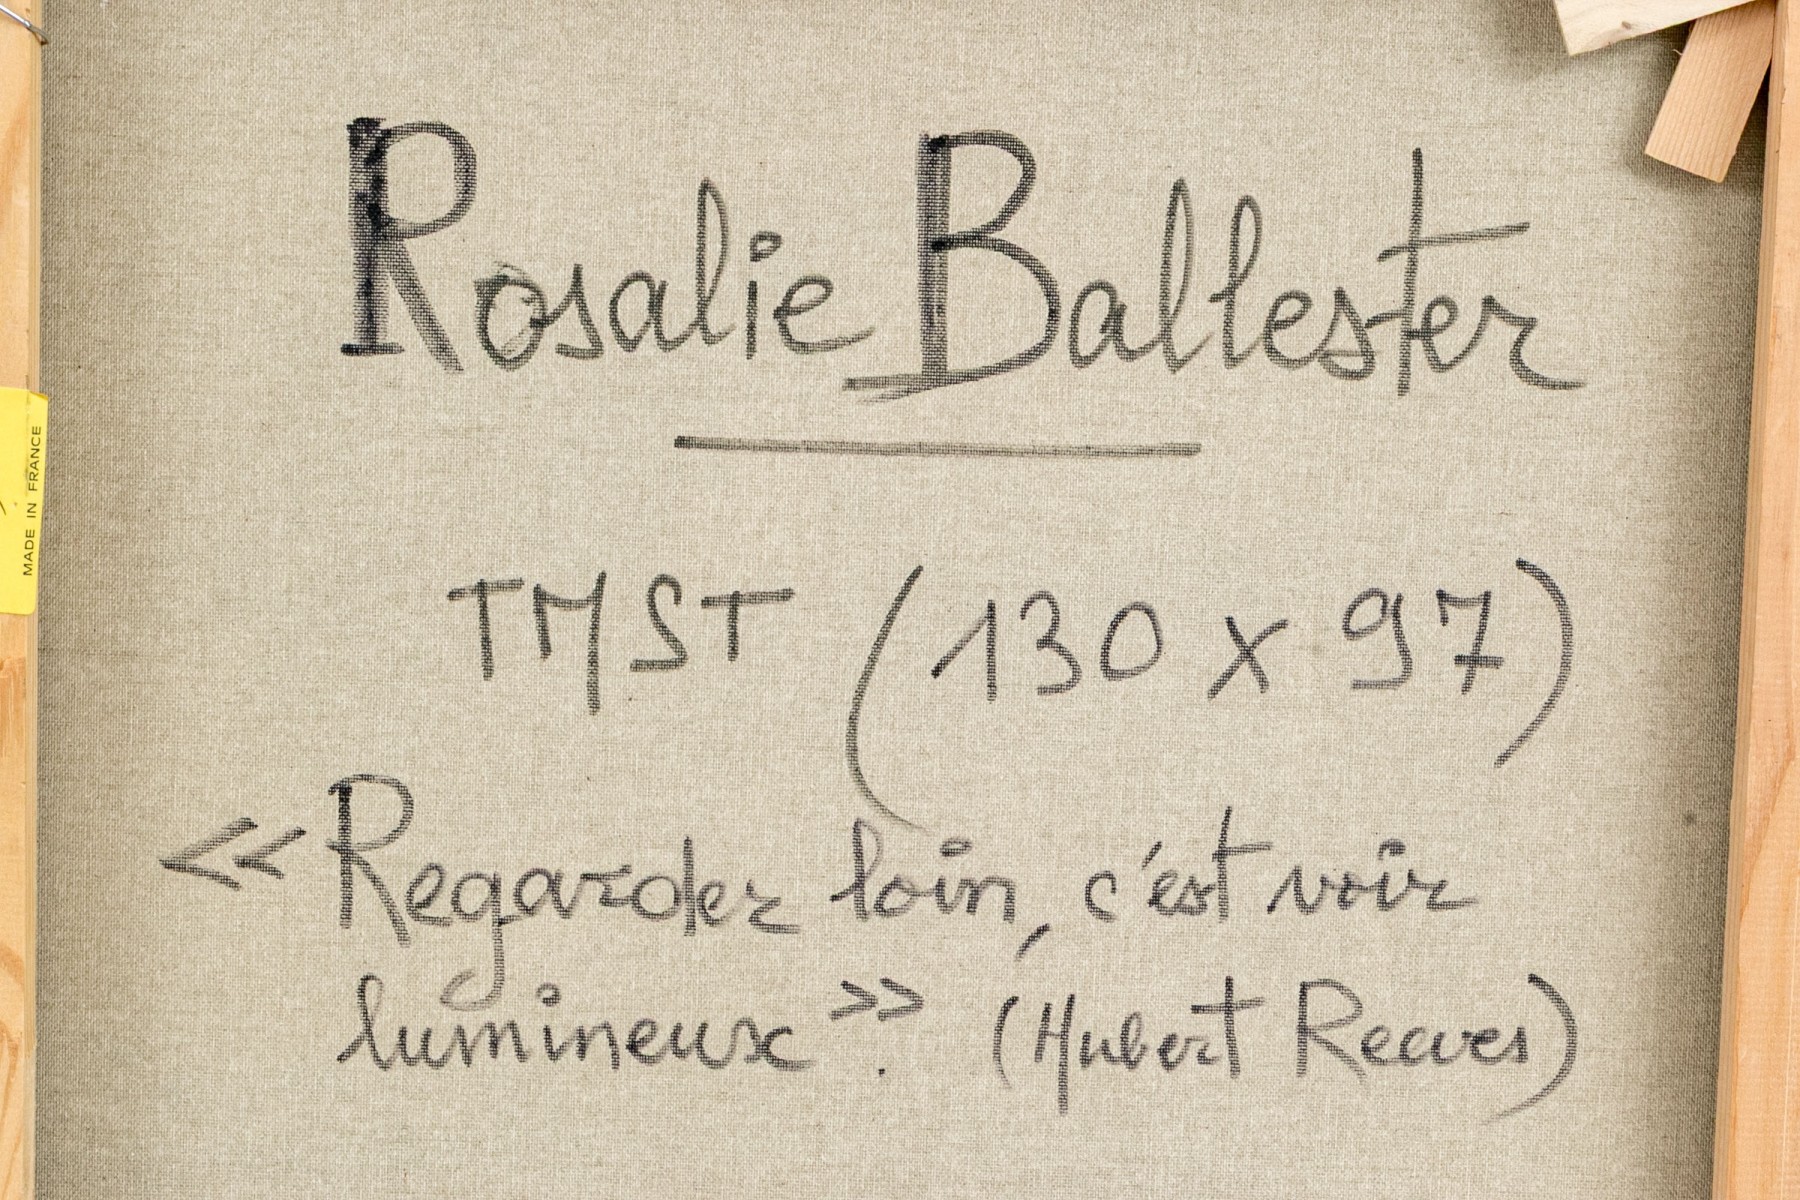 Rosalie Ballester
TMST (130 x 97)
<< Regarder loin, c'est voir
lumineux >>. (Hubert Reeves)
MADE IN FRANCE